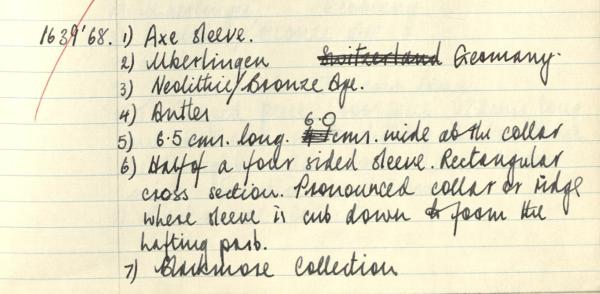 1639'68. 1) Axe sleeve.
2) Uberlingen Switzerland Germany.
3) Neolithic/Bronze Age.
4) Antler
6.0
5) 6.5 cms. long. cms. wide at the collar
6) Half of a four sided sleeve. Rectangular
cross section. Pronounced collar or ridge
where sleeve is cut down to form the
hafting part.
7) Blackmore Collection